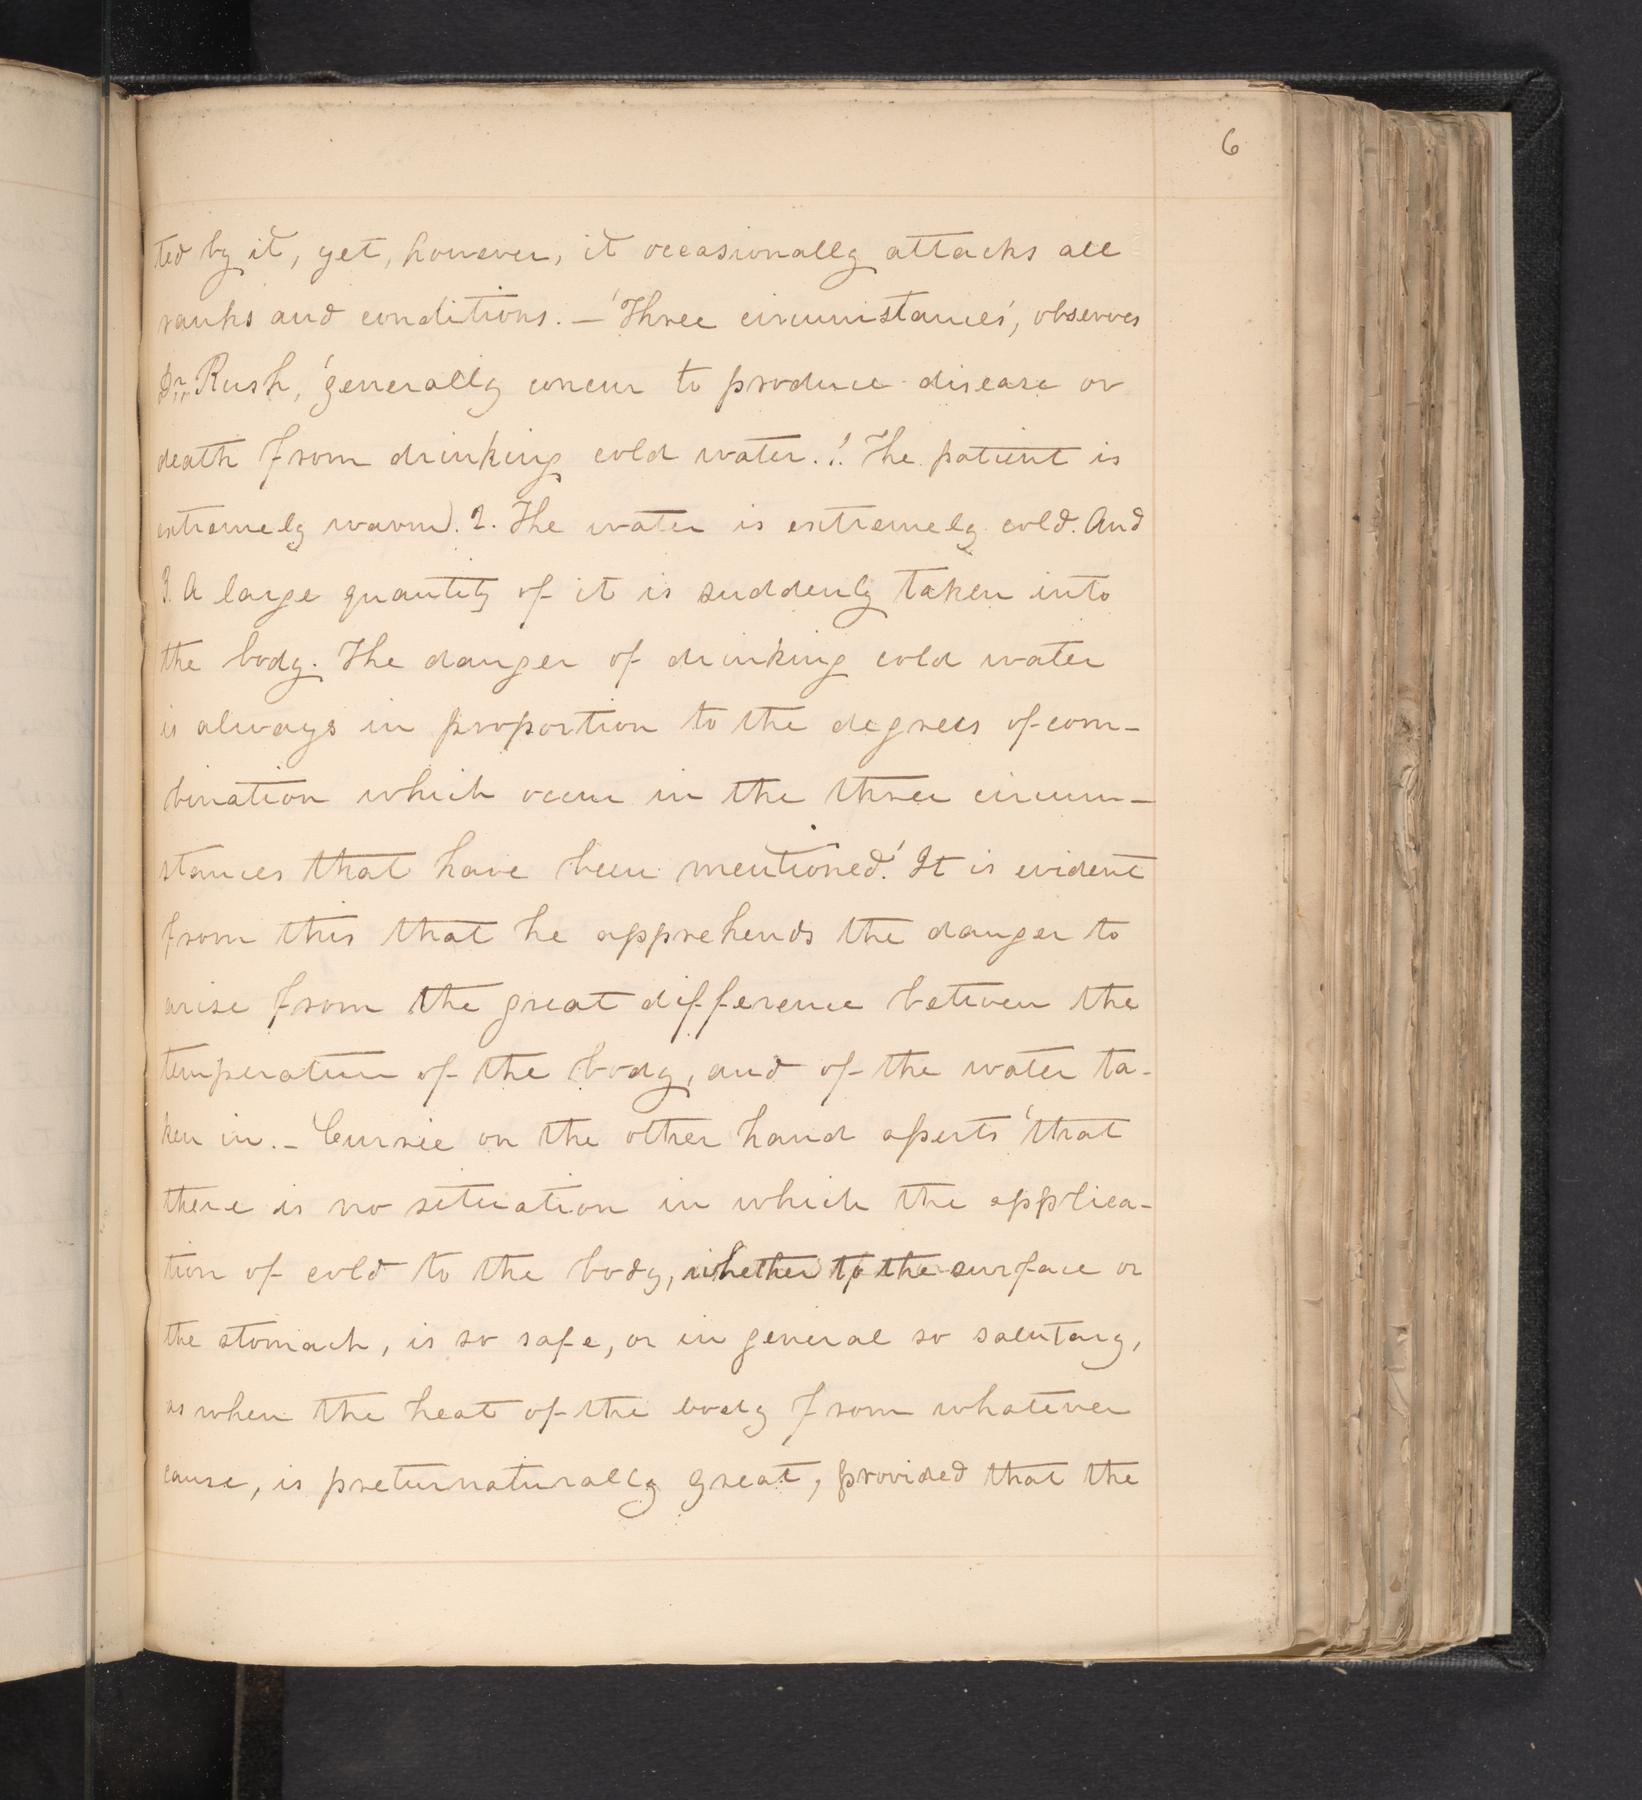 6
ted by it, yet, however, it occasionally attacks all
ranks and conditions. — 'Three circumstances', observes
Dr. Rush, 'generally concur to produce disease or
death from drinking cold water. 1. The patient is
extremely warm. 2. The water is extremely cold. And
3. A large quantity of it is suddenly taken into
the body. The danger of drinking cold water
is always in proportion to the degrees of com-
bination which occur in the three circum-
stances that have been mentioned.' It is evident
from this that he apprehends the danger to
arise from the great difference between the
temperature of the body, and of the water ta-
ken in. — Currie on the other hand asserts 'that
there is no situation in which the applica-
tion of cold to the body, whether to the surface or
the stomach, is so safe, or in general so salutary,
as when the heat of the body from whatever
cause, is preturnaturally great, provided that the